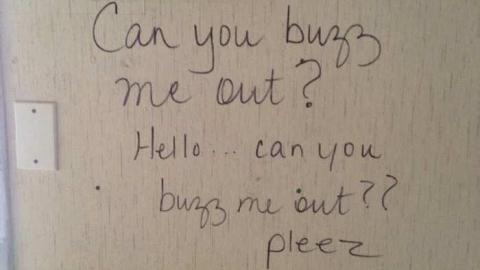 Can you buzz
me out?
Hello... can you
buzz me out??
pleez